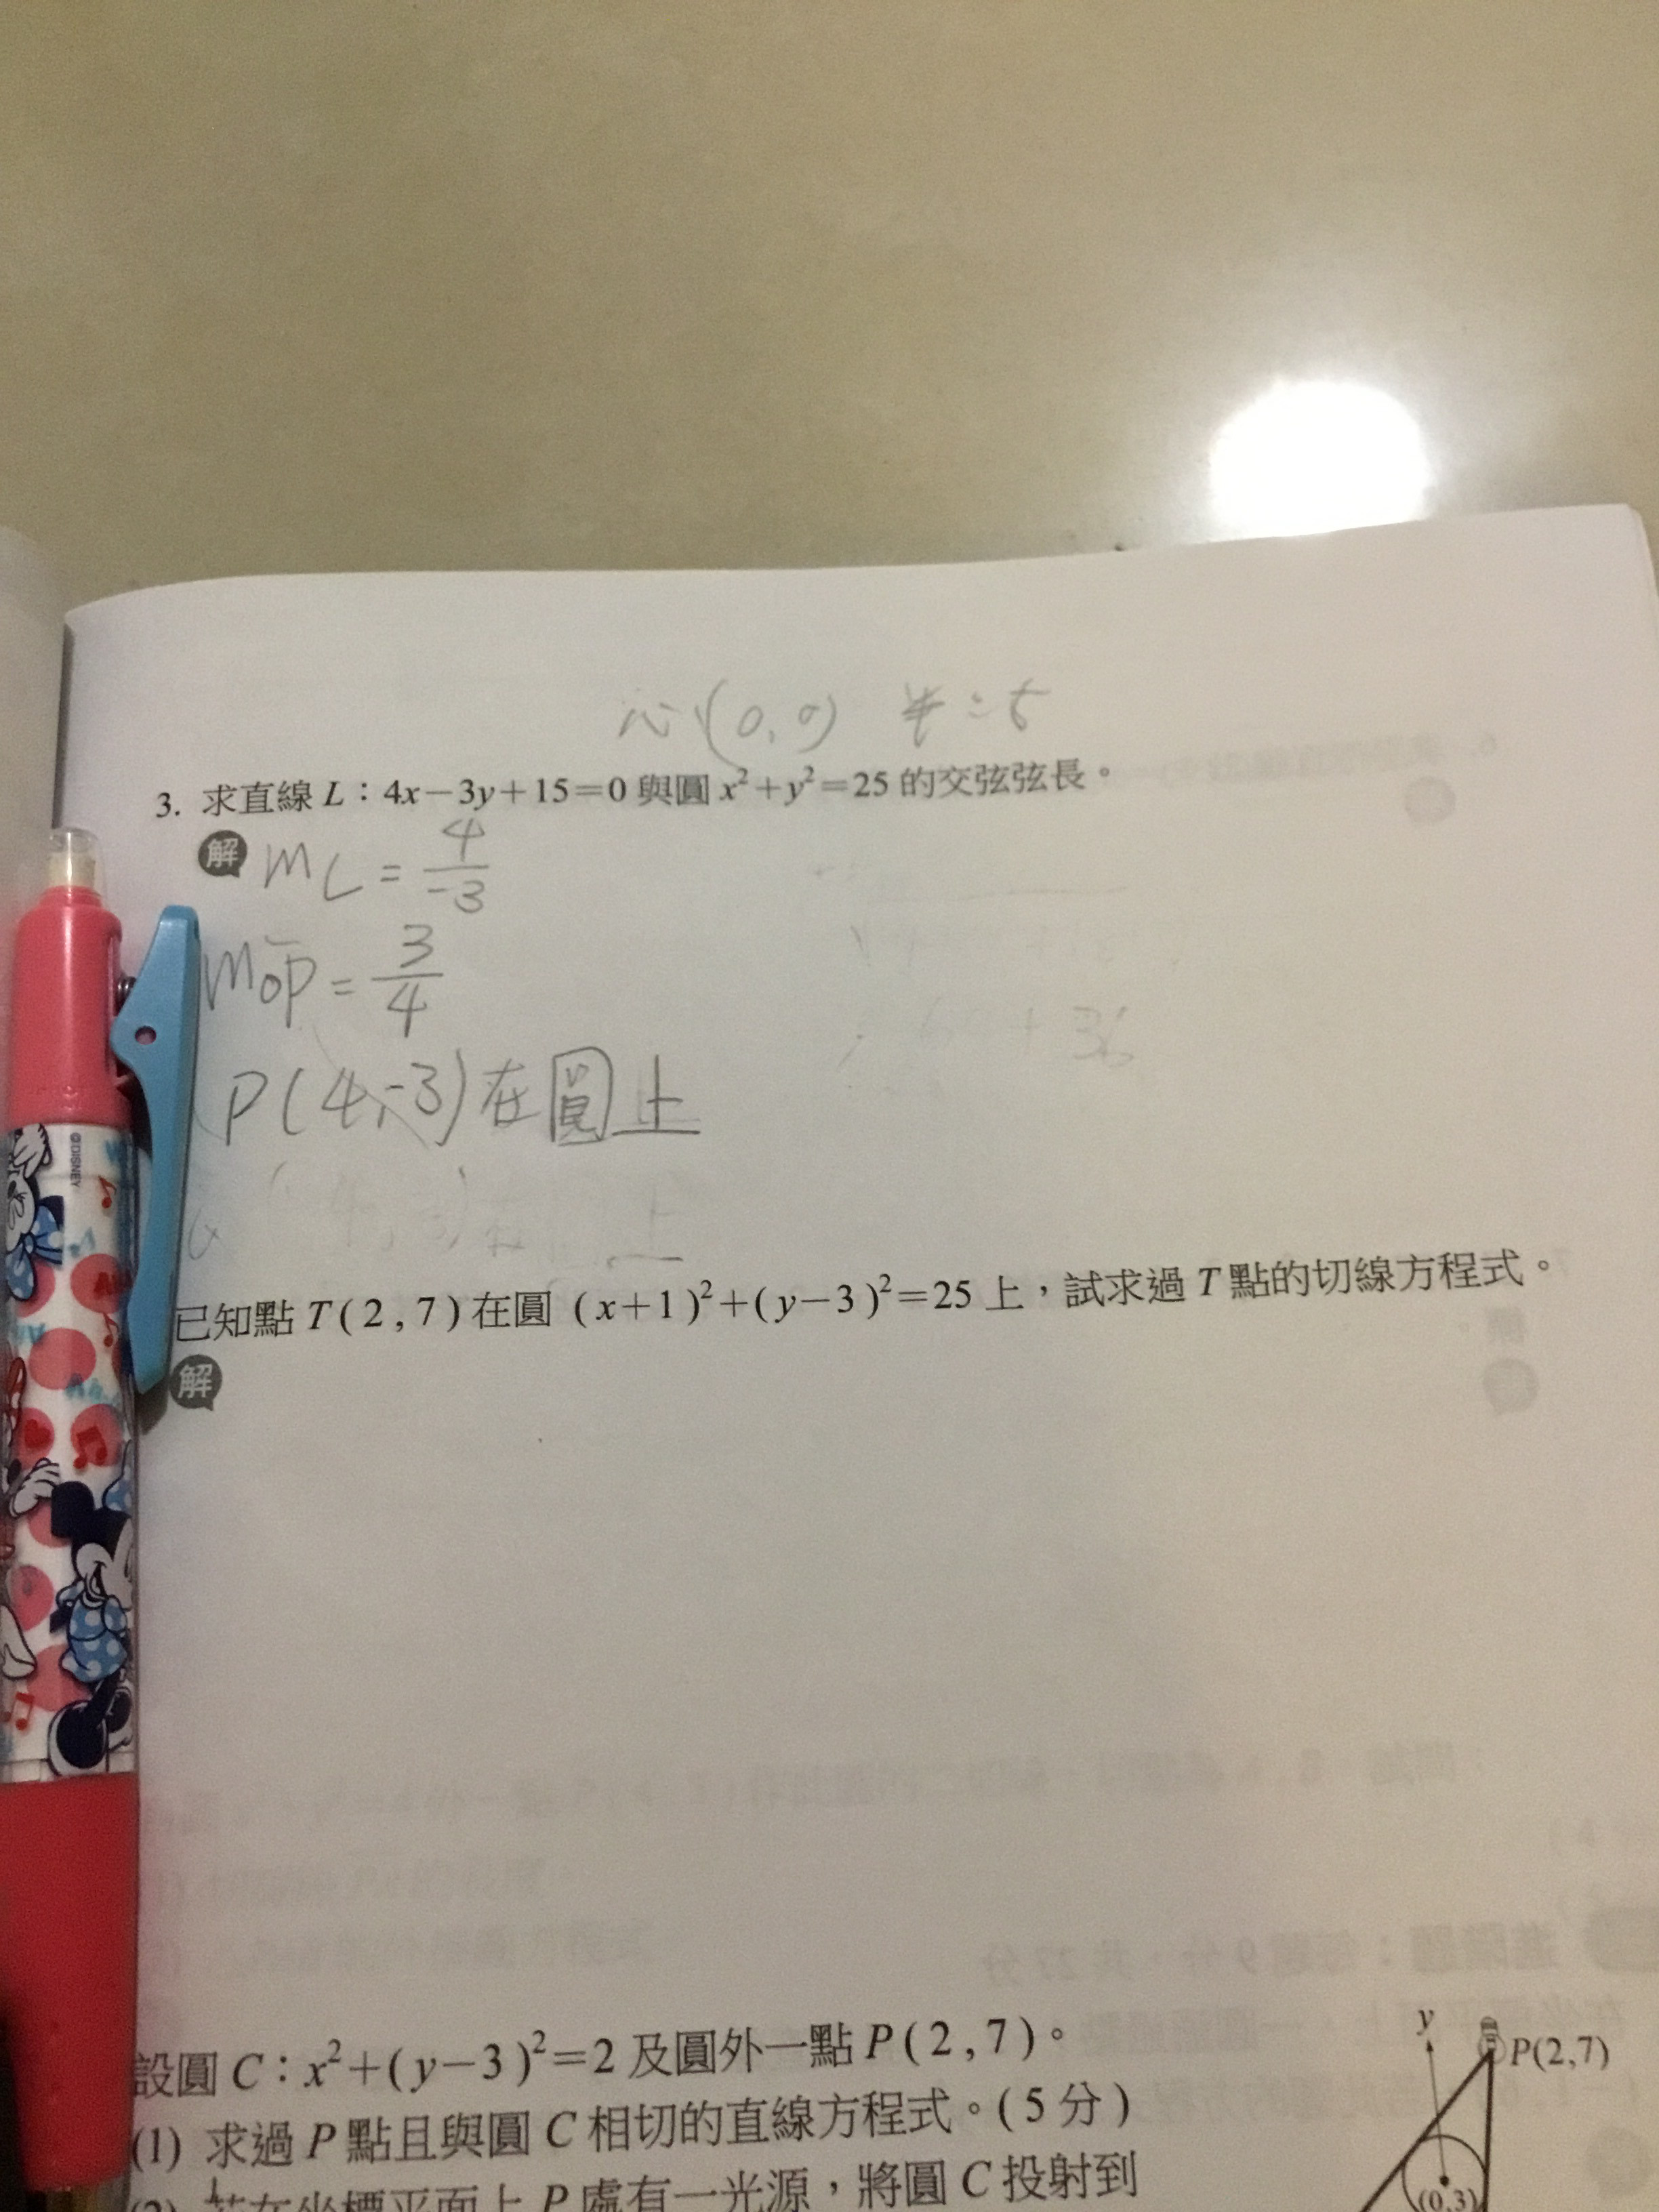 心(0,0) 半=5
3. 求直線 L：4x−3y+15=0 與圓 x²+y²=25 的交弦弦長。
解 mL = 4/-3
mOP = 3/4
P(4,-3)在圓上
已知點 T(2,7)在圓 (x+1)²+(y−3)²=25 上，試求過 T 點的切線方程式。
解
設圓 C：x²+(y−3)²=2 及圓外一點 P(2,7)。
(1) 求過 P 點且與圓 C 相切的直線方程式。(5 分)
(2) 若在坐標平面上 P 處有一光源，將圓 C 投射到
y
P(2,7)
(0,3)
©DISNEY